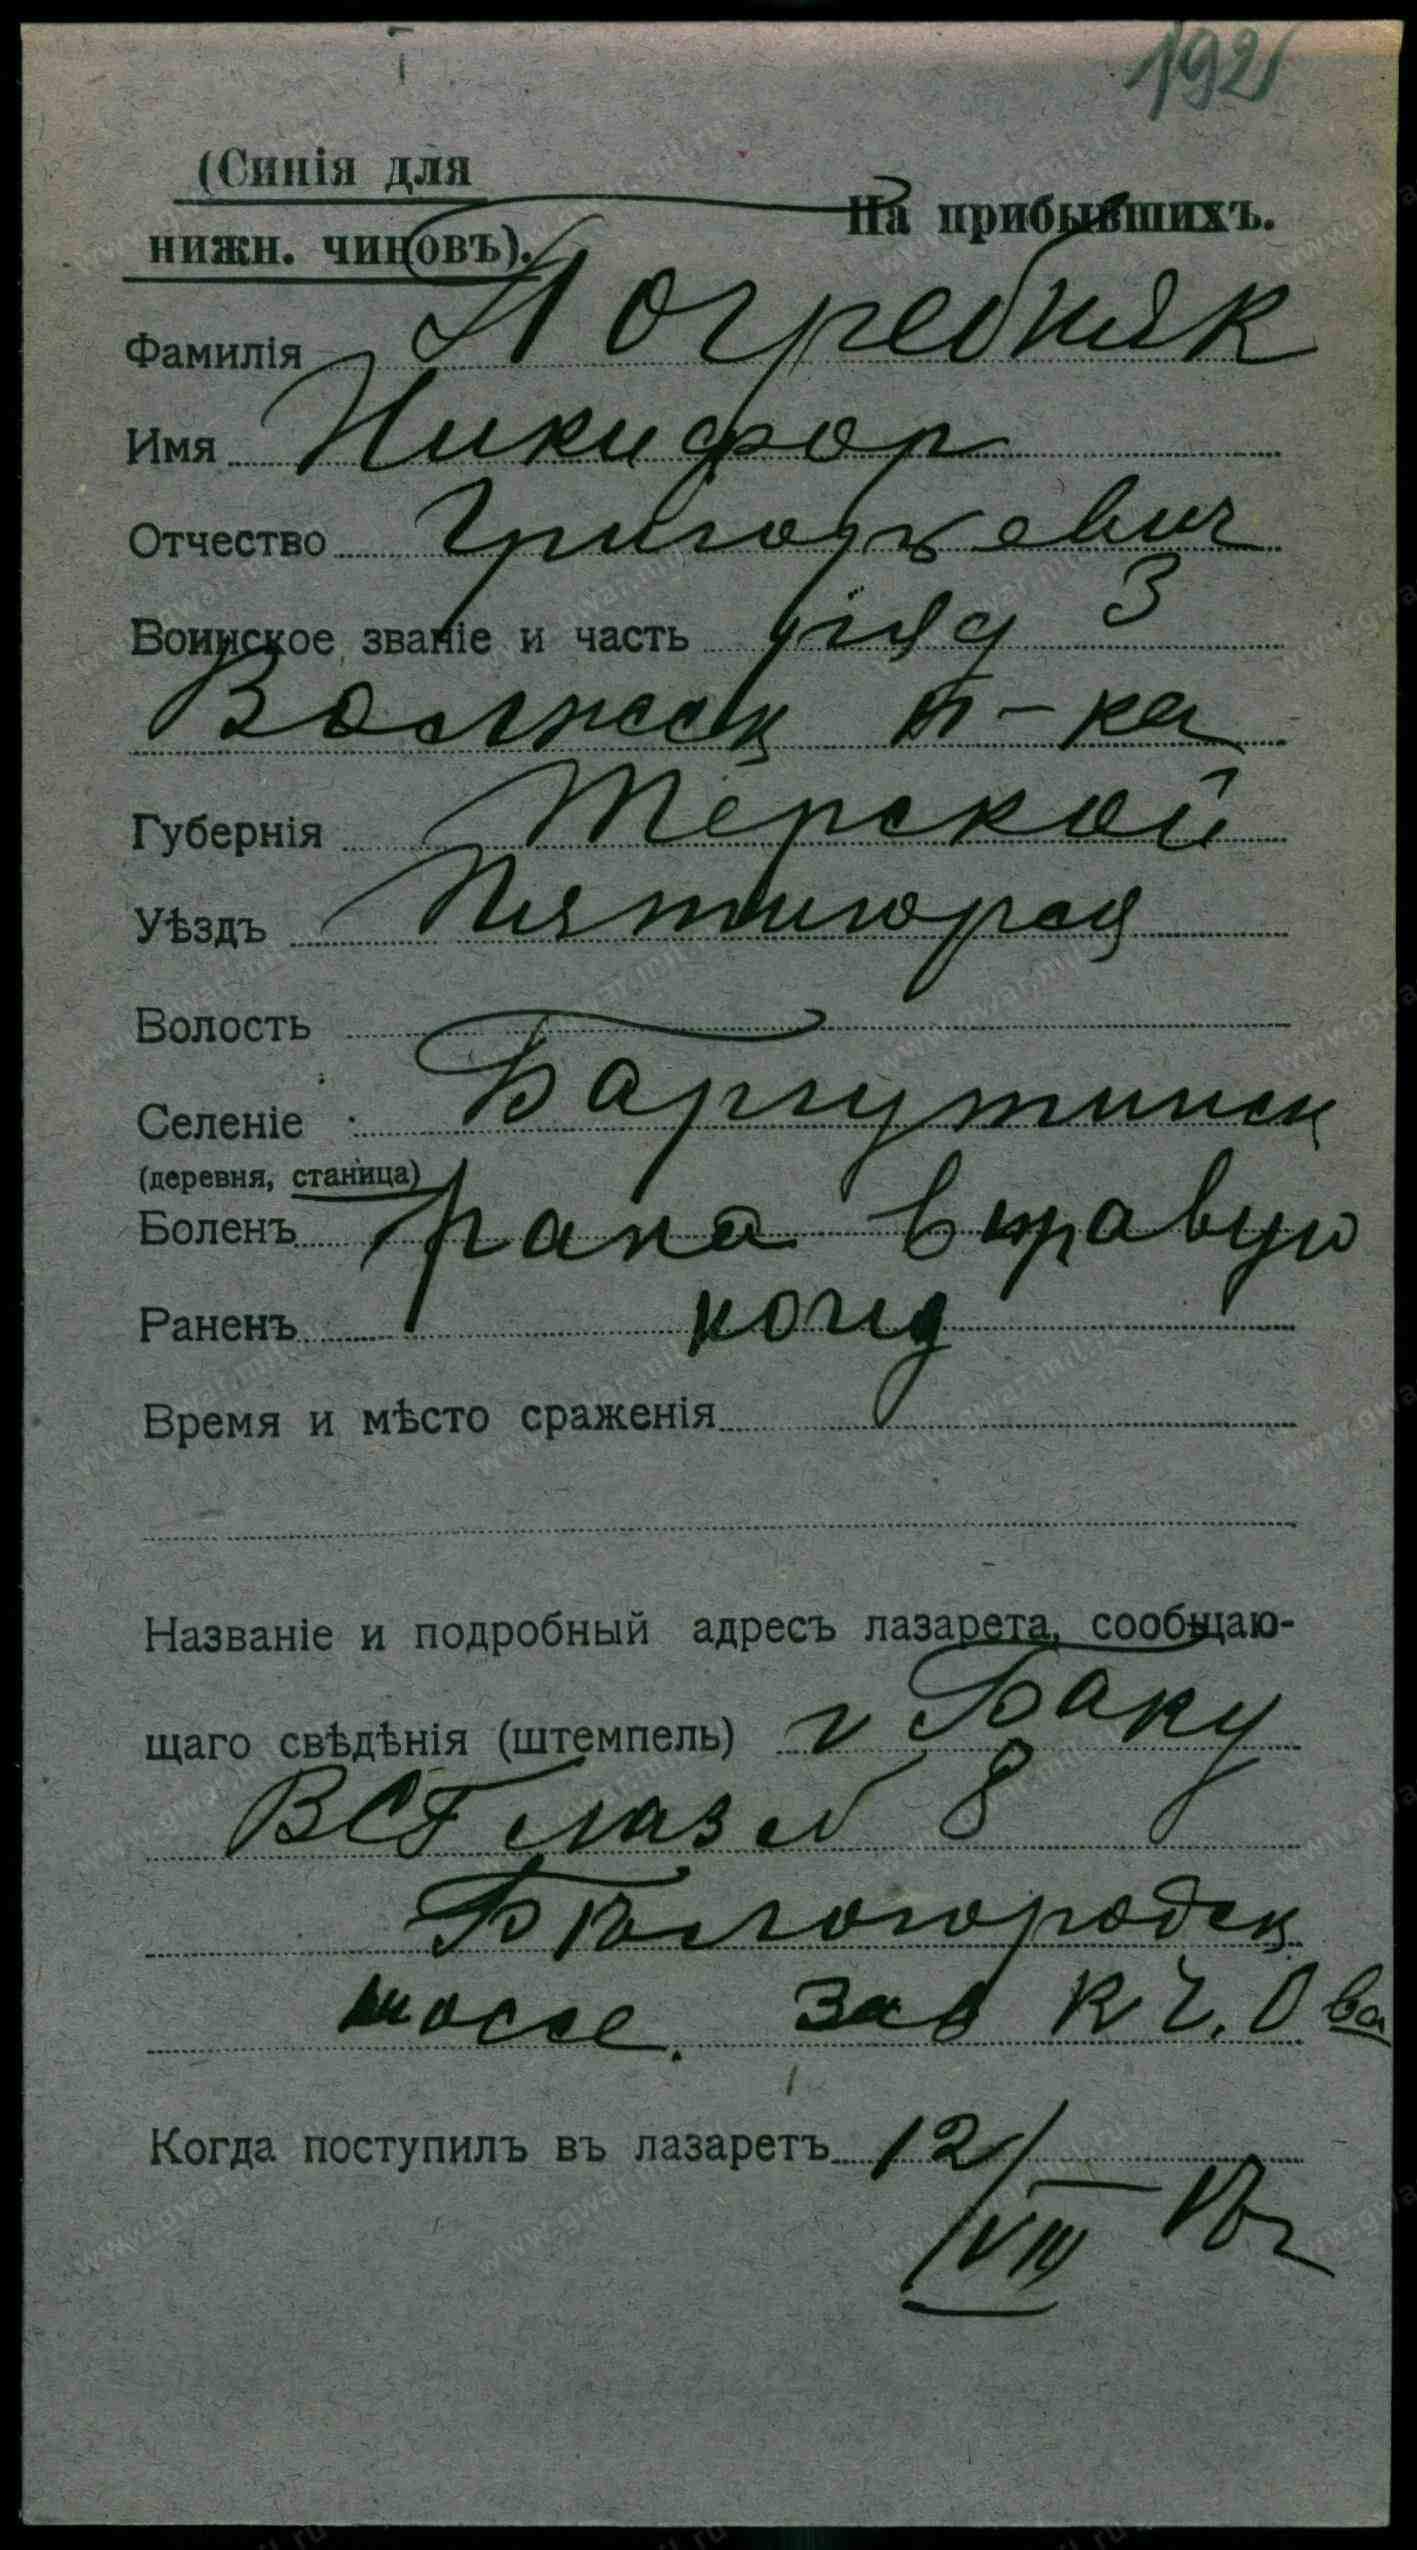 192
(Синія для
нижн. чиновъ).
На прибывшихъ.
Фамилія Погребняк
Имя Никифор
Отчество Григорьевич
Воинское званіе и часть ряд 3
Волжск п-ка
Губернія Терской
Уѣздъ Пятигорск
Волость
Селеніе Баргутинск
(деревня, станица)
Боленъ рана в правую
Раненъ ногу
Время и мѣсто сраженія
Названіе и подробный адресъ лазарета, сообщаю-
щаго свѣдѣнія (штемпель) г Баку
ВСГ лаз № 8
Бѣлогородск
шоссе. зав К Ч. О ва
Когда поступилъ въ лазаретъ 12/VIII
www.gwar.mil.ru